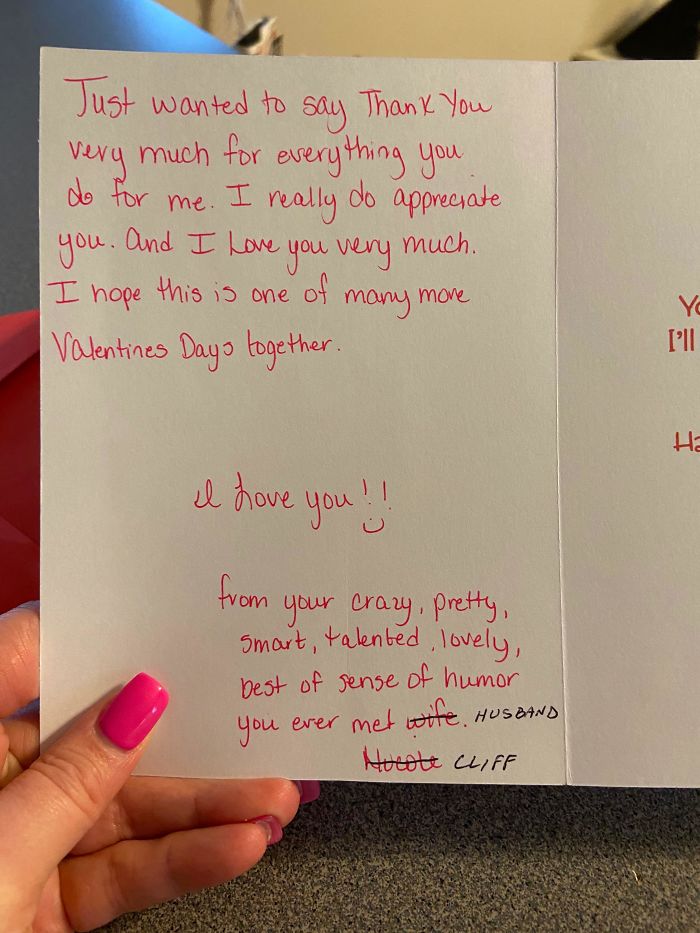 Just wanted to say Thank You
very much for everything you
do for me. I really do appreciate
you. And I Love you very much.
I hope this is one of many more
Valentines Days together.
I Love you!!
from your crazy, pretty,
smart, talented, lovely,
best of sense of humor
you ever met wife. HUSBAND
Nucole CLIFF
Yo
I'll
Ha